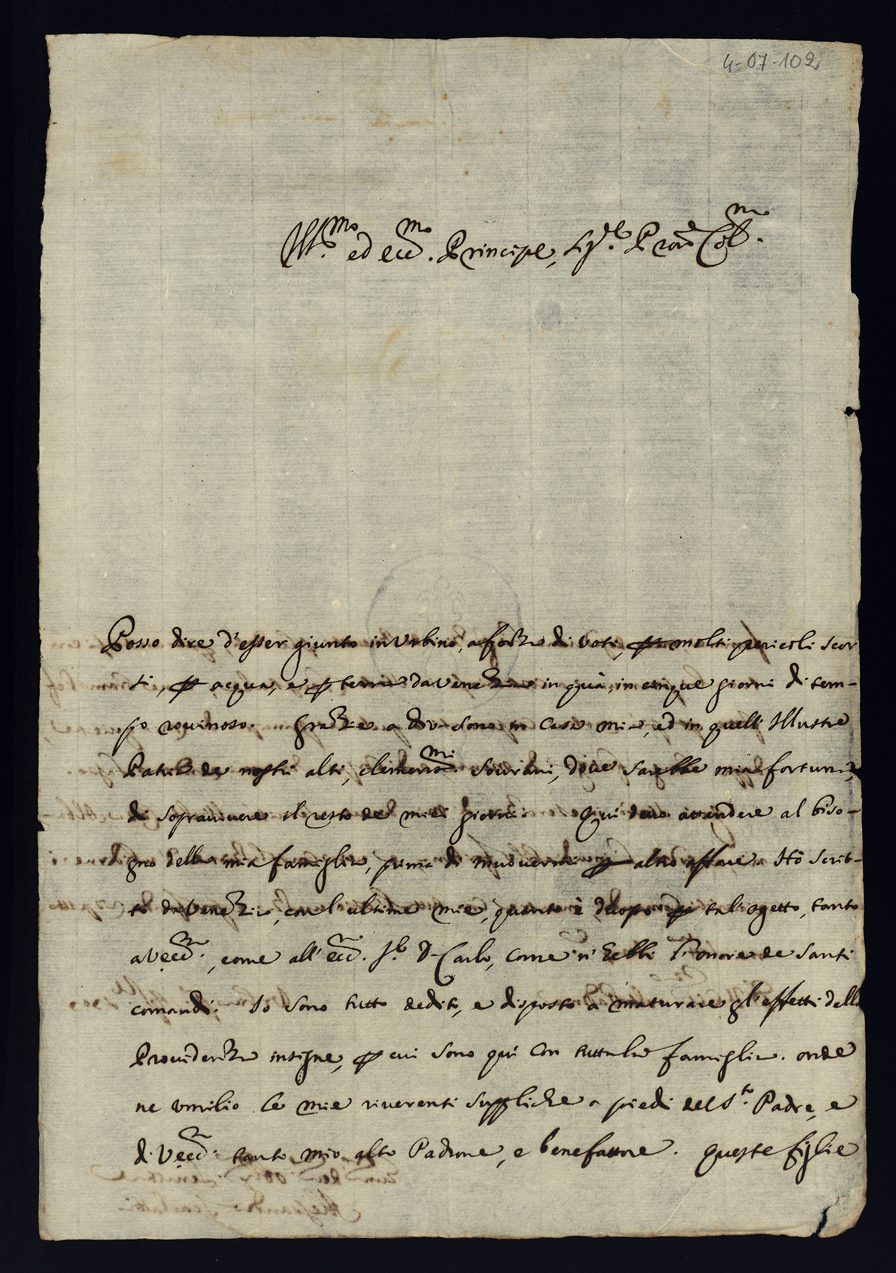 4-07-102
Ill.mo ed ecc.mo Principe, Sig.re Pron Col.mo
Posso dire d'esser giunto in Urbino, a forza di voti, per molti pericoli scor
si, per acqua, e per terra da Venezia in quà, in cinque giorni di tem-
po rovinoso. Grazie a Dio sono in casa mia, ed in quest'Illustre
Patria de nostri alti, clementis.mi sovrani, dove sarebbe mia fortuna,
di sopravivere il resto de miei giorni. Qui devo attendere al biso-
gno della mia famiglia, prima di muovermi per altro affare. Hò scrit-
to da Venezia, con l'ultime mie, quanto è d'uopo per tal ogetto, tanto
a V. ecc.a, come all'ecc.mo Sig. D. Carlo, come n'ebbi l'onore de santi
comandi. Io sono tutto dedito, e disposto a maturare gl'effetti della
Providenza insigne, per cui sono qui con tutta la famiglia. onde
ne umilio le mie riverenti suppliche a piedi del S.to Padre, e
di V. ecc.a tanto mio alto Padrone, e benefattore. queste figlie